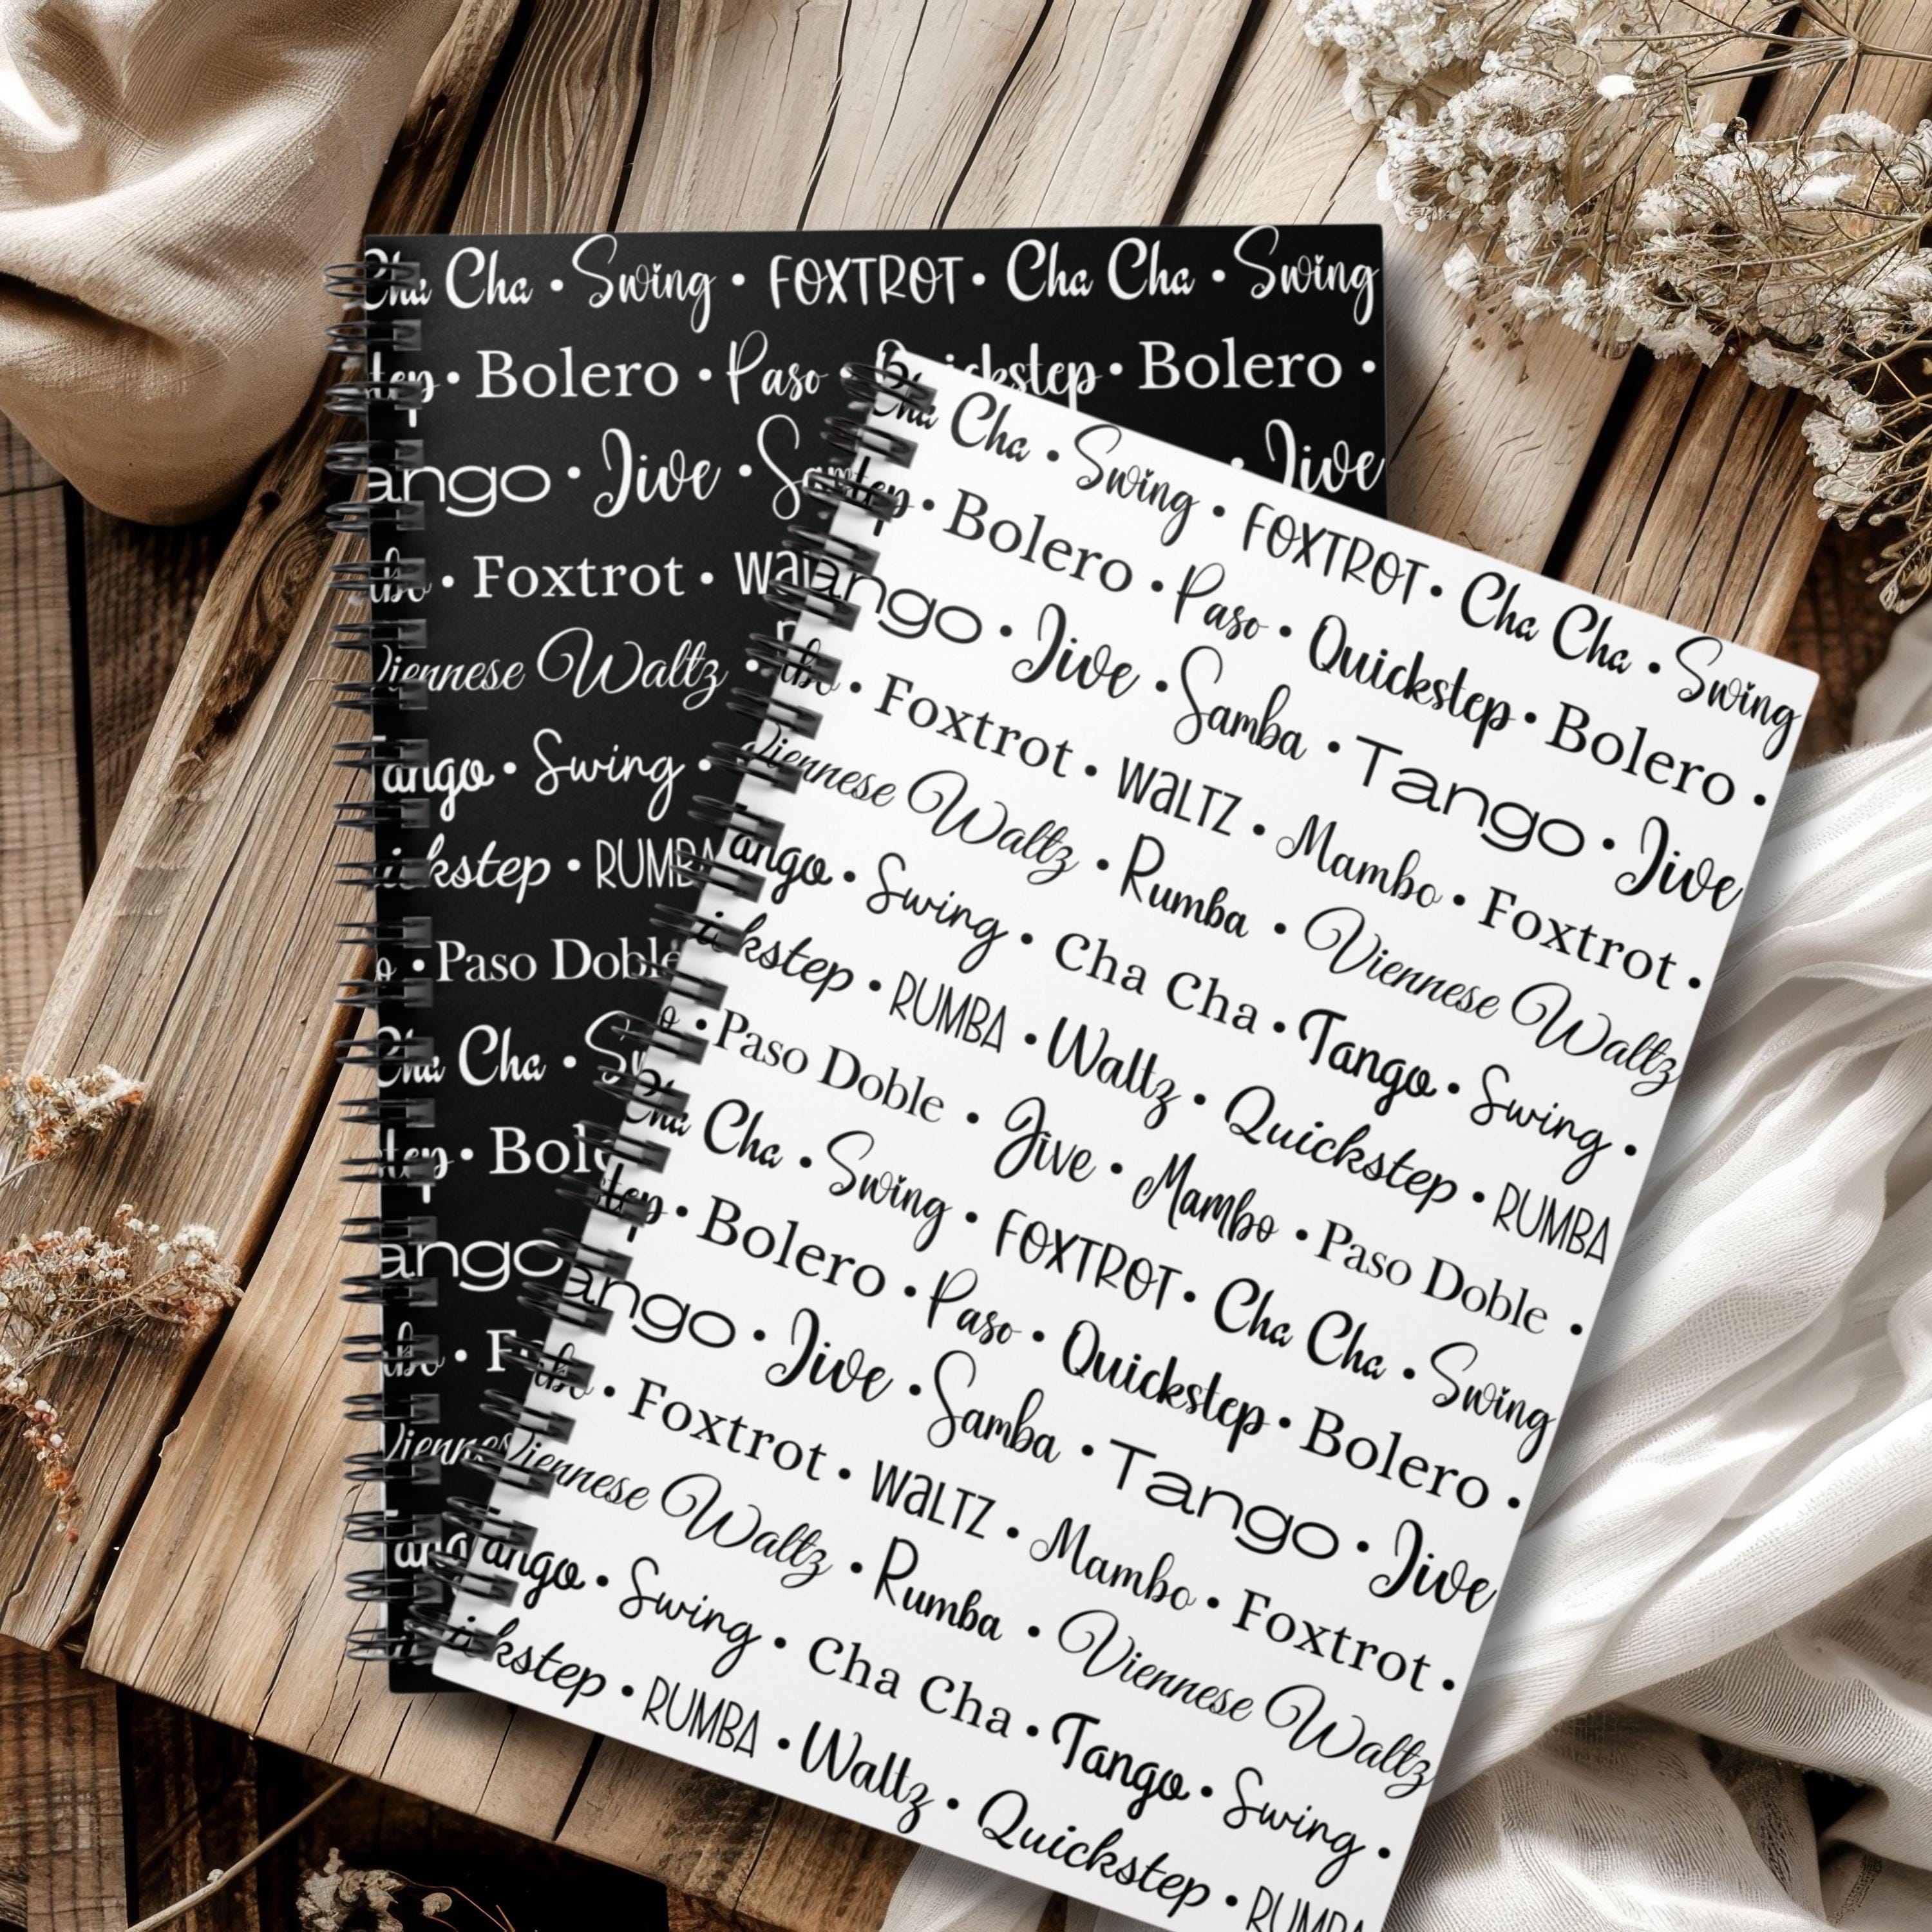 Cha Cha • Swing • FOXTROT • Cha Cha • Swing
• Bolero • Paso • Bolero •
• Jive • Jive
• Foxtrot •
Viennese Waltz •
Tango • Swing •
• RUMBA
• Paso Doble
Cha Cha •
•
•
Cha Cha • Swing • FOXTROT • Cha Cha • Swing
• Bolero • Paso • Quickstep • Bolero •
• Jive • Samba • Tango • Jive
• Foxtrot • WALTZ • Mambo • Foxtrot •
Viennese Waltz • Rumba • Viennese Waltz
Tango • Swing • Cha Cha • Tango • Swing •
• RUMBA • Waltz • Quickstep • RUMBA
• Paso Doble • Jive • Mambo • Paso Doble •
Cha Cha • Swing • FOXTROT • Cha Cha • Swing
• Bolero • Paso • Quickstep • Bolero •
• Jive • Samba • Tango • Jive
• Foxtrot • WALTZ • Mambo • Foxtrot •
Viennese Waltz • Rumba • Viennese Waltz
Tango • Swing • Cha Cha • Tango • Swing •
• RUMBA • Waltz • Quickstep • RUMBA